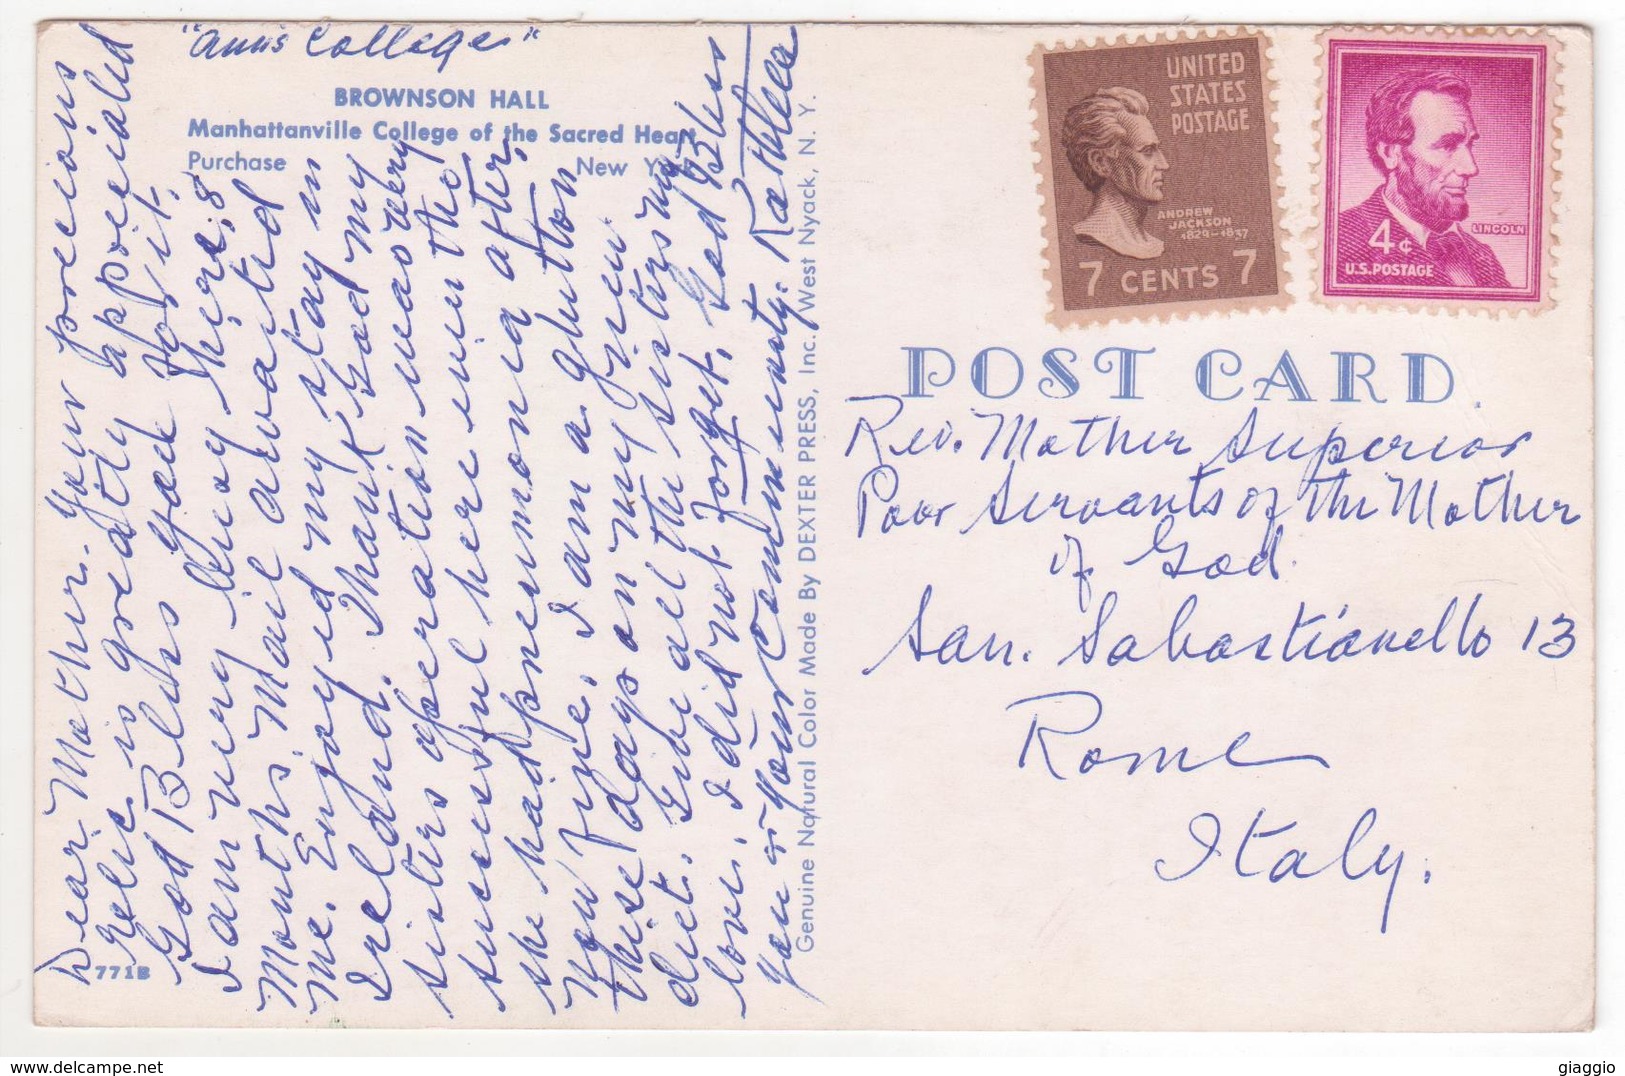 "Ann's College"
BROWNSON HALL
Manhattanville College of the Sacred Heart
Purchase New York
Dear Mother. Your precious
relic is greatly appreciated
God Bless you for it.
I am very busy here, 8
Months Mail awaited
me. Enjoyed my stay in
Ireland. Thank God my
sisters operation was very
successful here in the
she had pneumonia after,
Now fine. I am a glutton
these days on my new
diet. Give all the sisters my
love. I did not forget. God Bless
you & Your Community. Kathleen
771B
Genuine Natural Color Made By DEXTER PRESS, Inc. West Nyack, N. Y.
UNITED
STATES
POSTAGE
ANDREW
JACKSON
1829-1837
7 CENTS 7
LINCOLN
4¢
U.S. POSTAGE
POST CARD
Rev. Mother Superior
Poor Servants of the Mother
of God.
San. Sabastianello 13
Rome
Italy.
giaggio